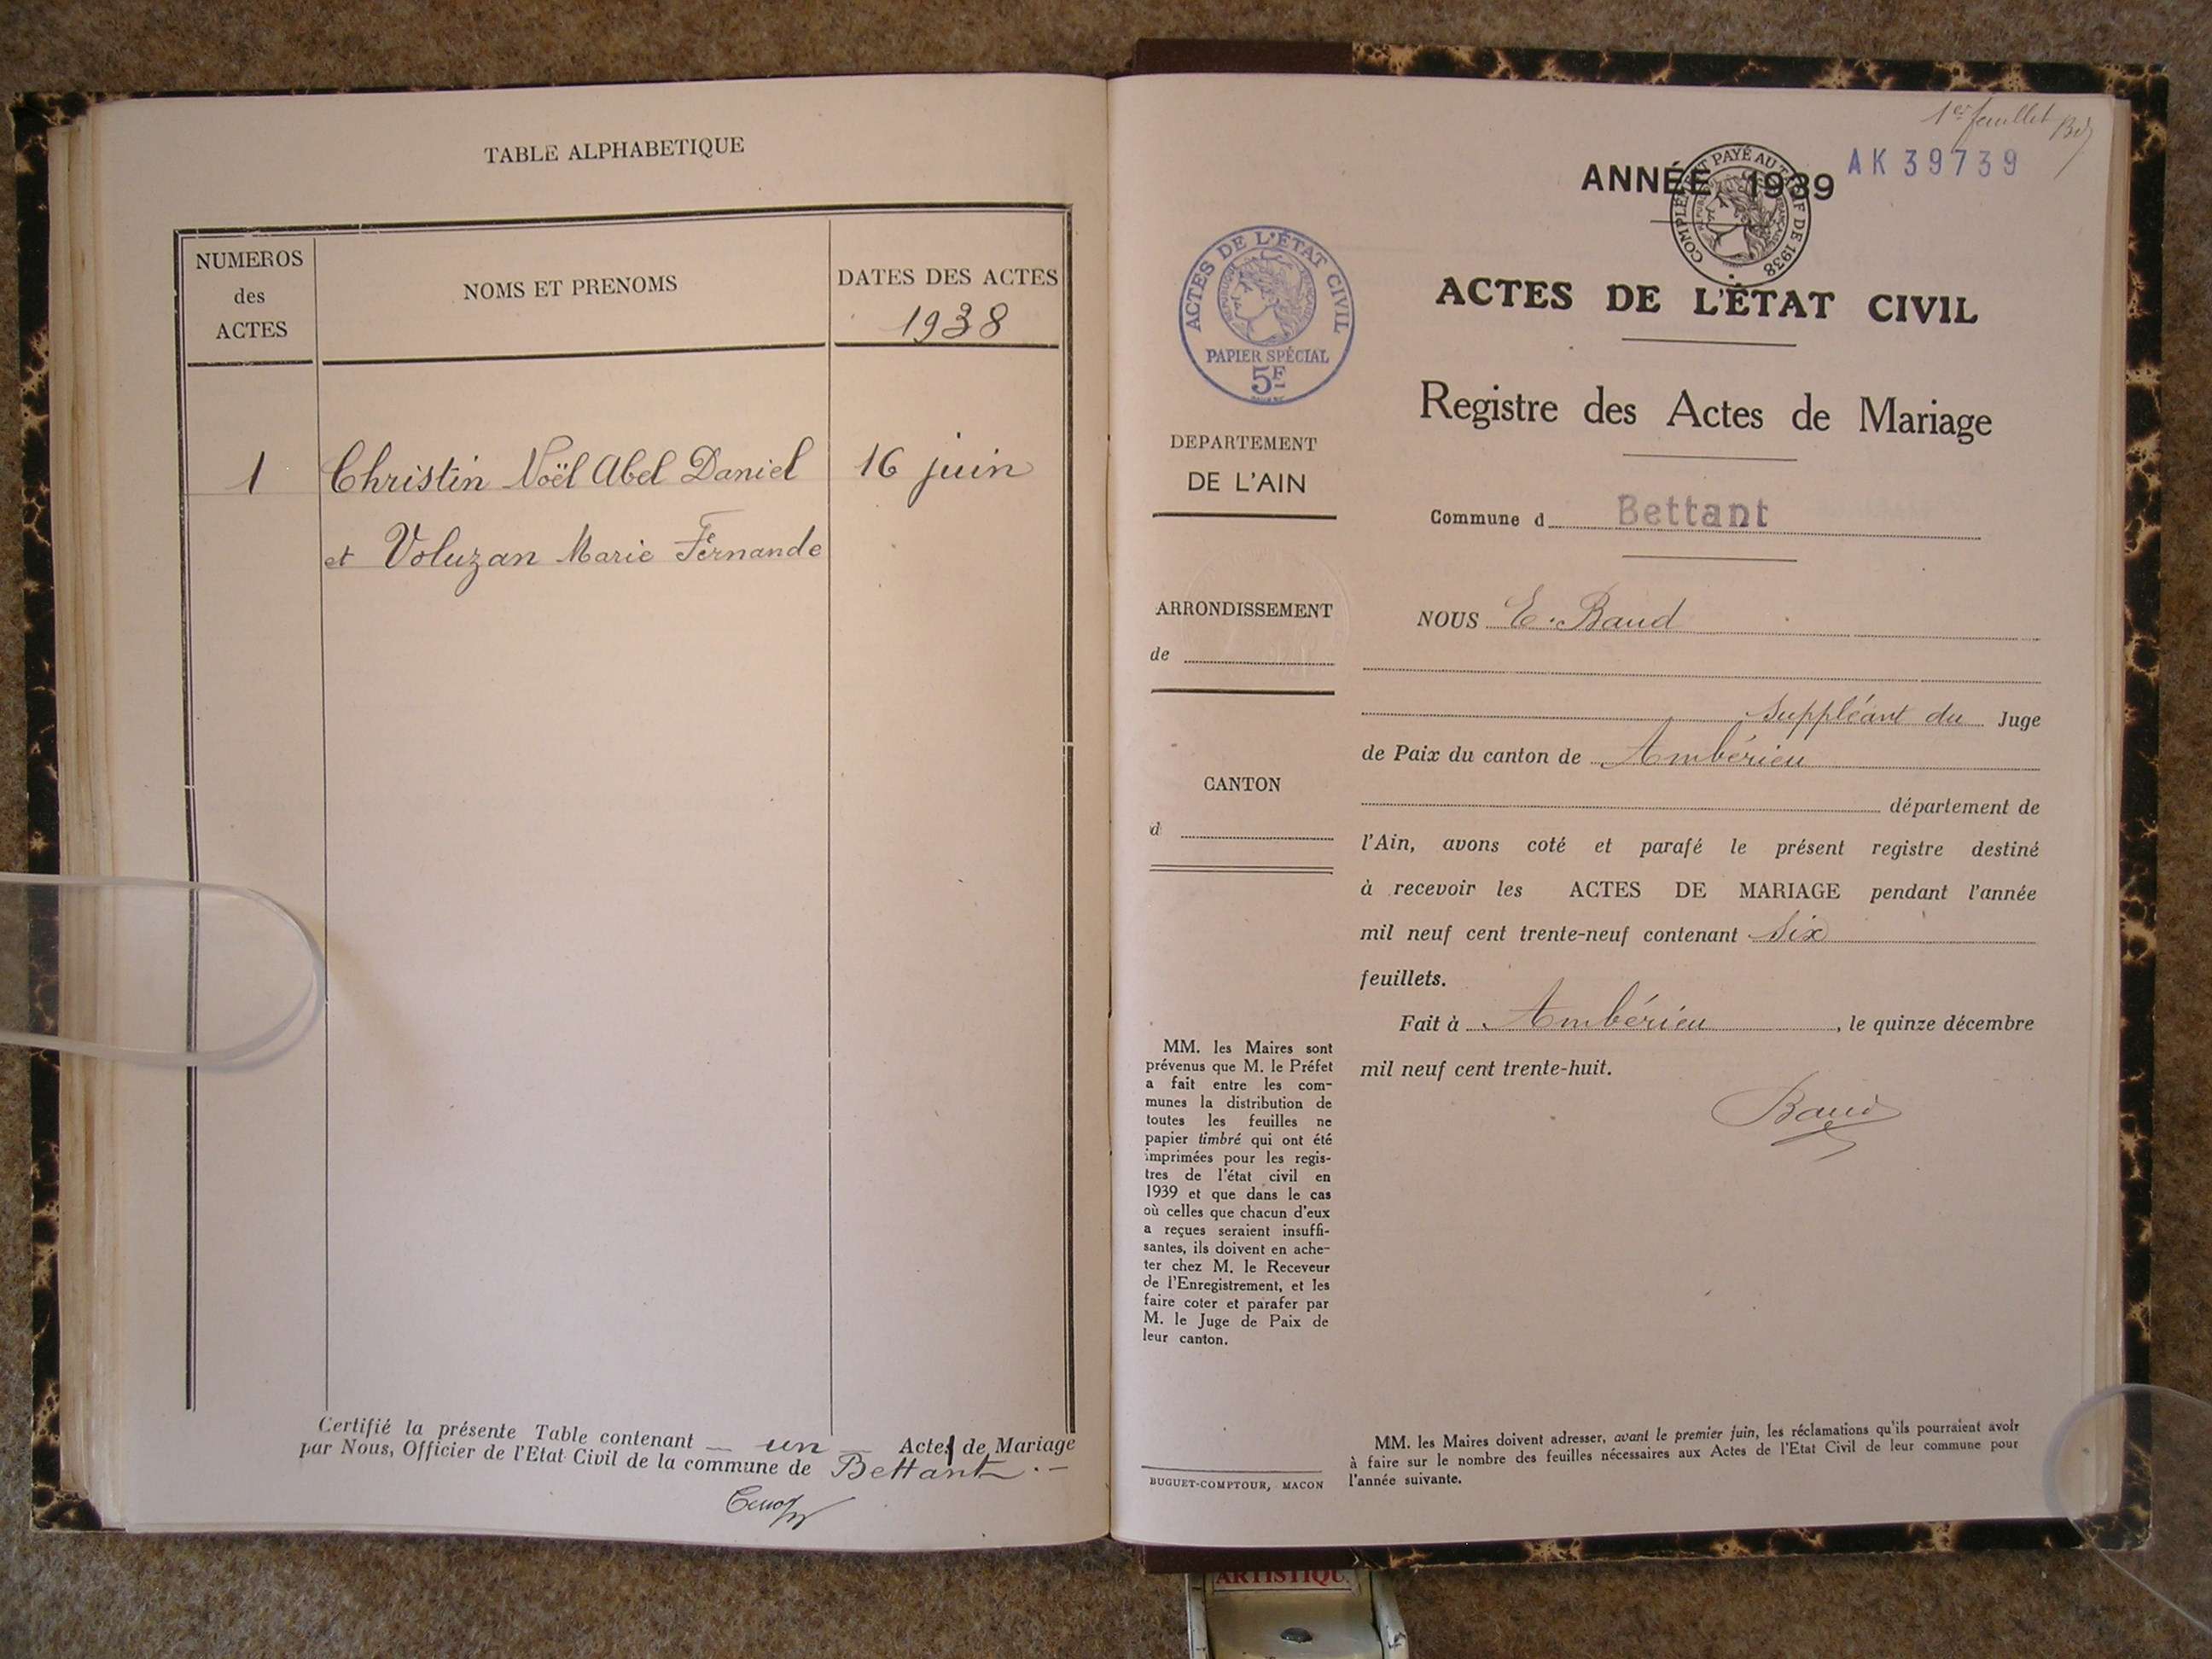 TABLE ALPHABETIQUE
NUMEROS
des
ACTES
NOMS ET PRENOMS
DATES DES ACTES
1938
1 Christin Noël Abel Daniel 16 juin
et Voluzan Marie Fernande
Certifié la présente Table contenant un Acte de Mariage
par Nous, Officier de l'Etat Civil de la commune de Bettant.
1er feuillet
AK 39739
ANNÉE 1939
COMPLÉMENT PAYÉ AU TARIF DE 1938
ACTES DE L'ÉTAT CIVIL
PAPIER SPÉCIAL
5F
ACTES DE L'ÉTAT CIVIL
Registre des Actes de Mariage
DEPARTEMENT
DE L'AIN
Commune d Bettant
ARRONDISSEMENT
de
CANTON
d
NOUS E. Baud
suppléant du Juge
de Paix du canton de Ambérieu
département de
l'Ain, avons coté et parafé le présent registre destiné
à recevoir les ACTES DE MARIAGE pendant l'année
mil neuf cent trente-neuf contenant six
feuillets.
Fait à Ambérieu, le quinze décembre
mil neuf cent trente-huit.
Baud
MM. les Maires sont
prévenus que M. le Préfet
a fait entre les com-
munes la distribution de
toutes les feuilles ne
papier timbré qui ont été
imprimées pour les regis-
tres de l'état civil en
1939 et que dans le cas
où celles que chacun d'eux
a reçues seraient insuffi-
santes, ils doivent en ache-
ter chez M. le Receveur
de l'Enregistrement, et les
faire coter et parafer par
M. le Juge de Paix de
leur canton.
BUGUET-COMPTOUR, MACON
MM. les Maires doivent adresser, avant le premier juin, les réclamations qu'ils pourraient avoir
à faire sur le nombre des feuilles nécessaires aux Actes de l'Etat Civil de leur commune pour
l'année suivante.
ARTISTIQU